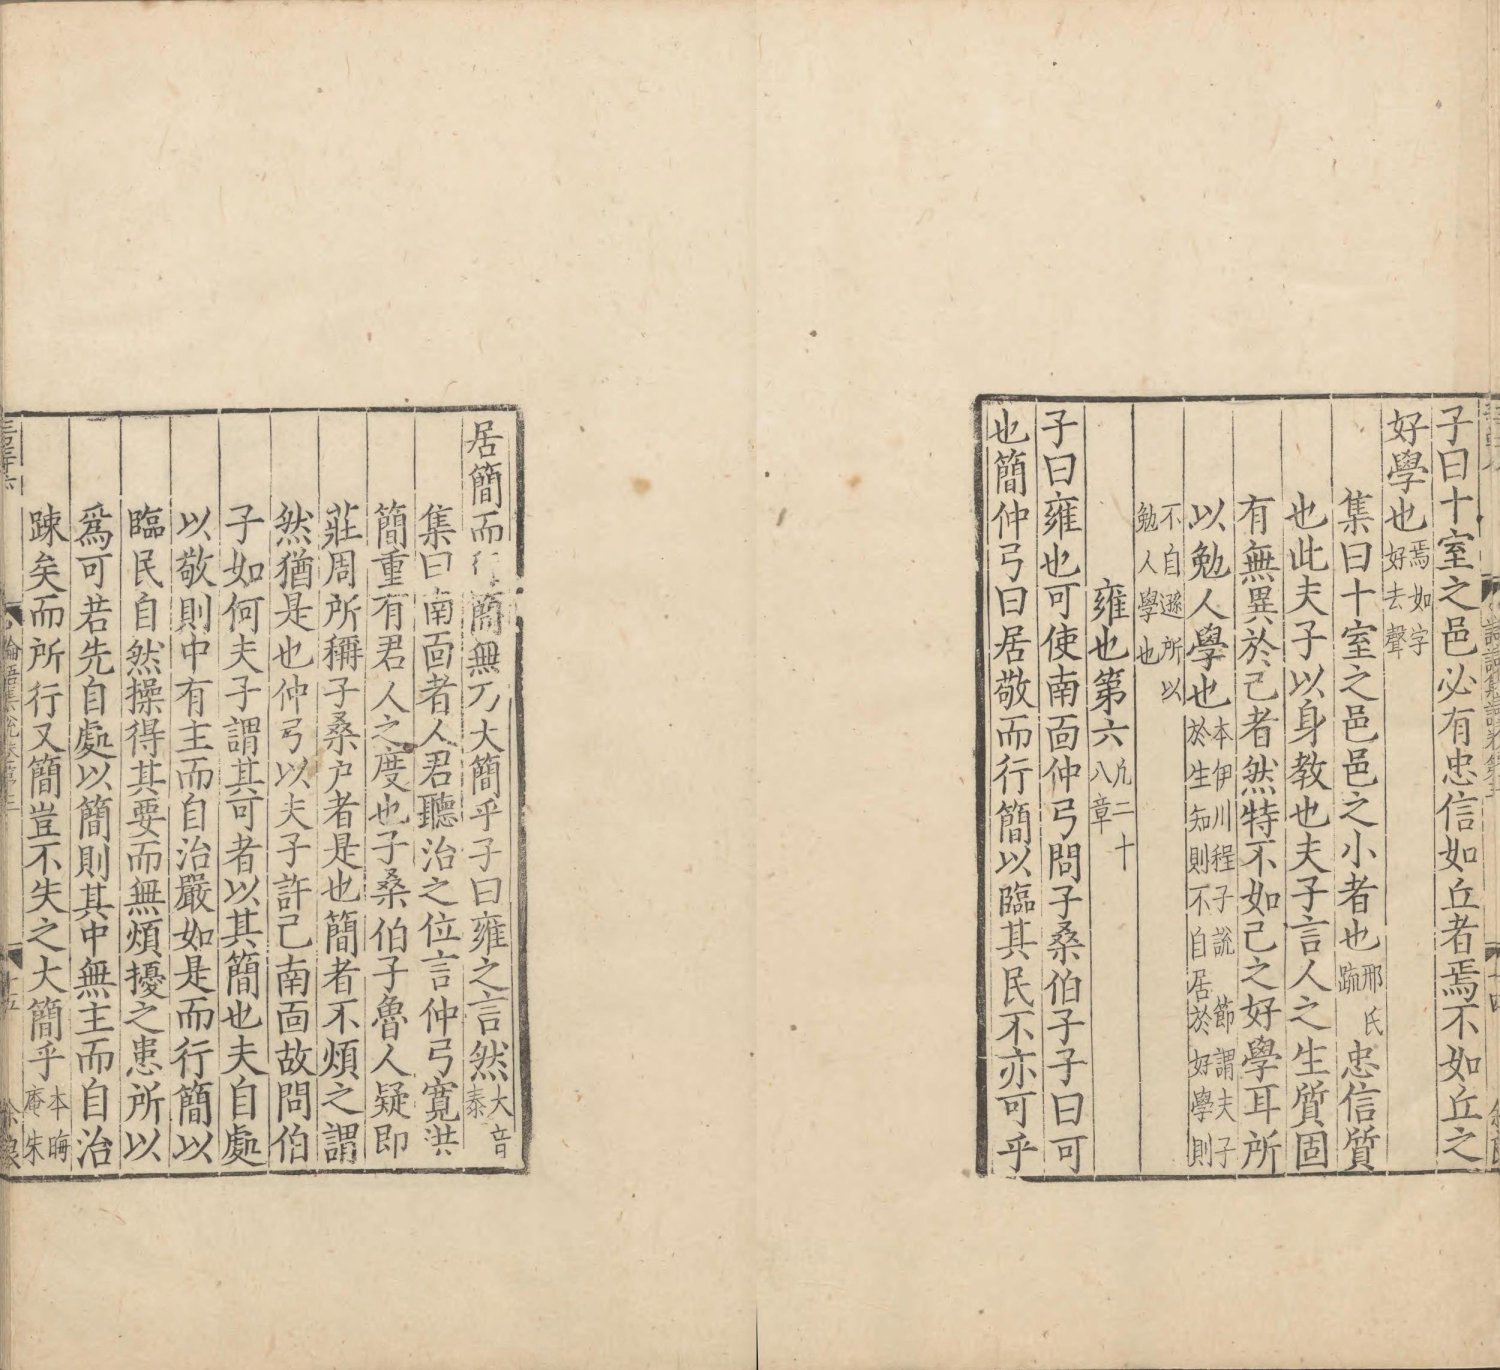 子曰十室之邑必有忠信如丘者焉不如丘之
好學也焉如字好去聲
集曰十室之邑邑之小者也邢氏疏忠信質
也此夫子以身教也夫子言人之生質固
有無異於己者然特不如己之好學耳所
以勉人學也本伊川程子說 節謂夫子於生知則不自居於好學則
不自遜所以勉人學也
雍也第六凡二十八章
子曰雍也可使南面仲弓問子桑伯子子曰可
也簡仲弓曰居敬而行簡以臨其民不亦可乎
居簡而行簡無乃大簡乎子曰雍之言然大音泰
集曰南面者人君聽治之位言仲弓寬洪
簡重有君人之度也子桑伯子魯人疑即
莊周所稱子桑户者是也簡者不煩之謂
然猶是也仲弓以夫子許己南面故問伯
子如何夫子謂其可者以其簡也夫自處
以敬則中有主而自治嚴如是而行簡以
臨民自然操得其要而無煩擾之患所以
爲可若先自處以簡則其中無主而自治
踈矣而所行又簡豈不失之大簡乎本晦庵朱
論語集說卷第三
十五